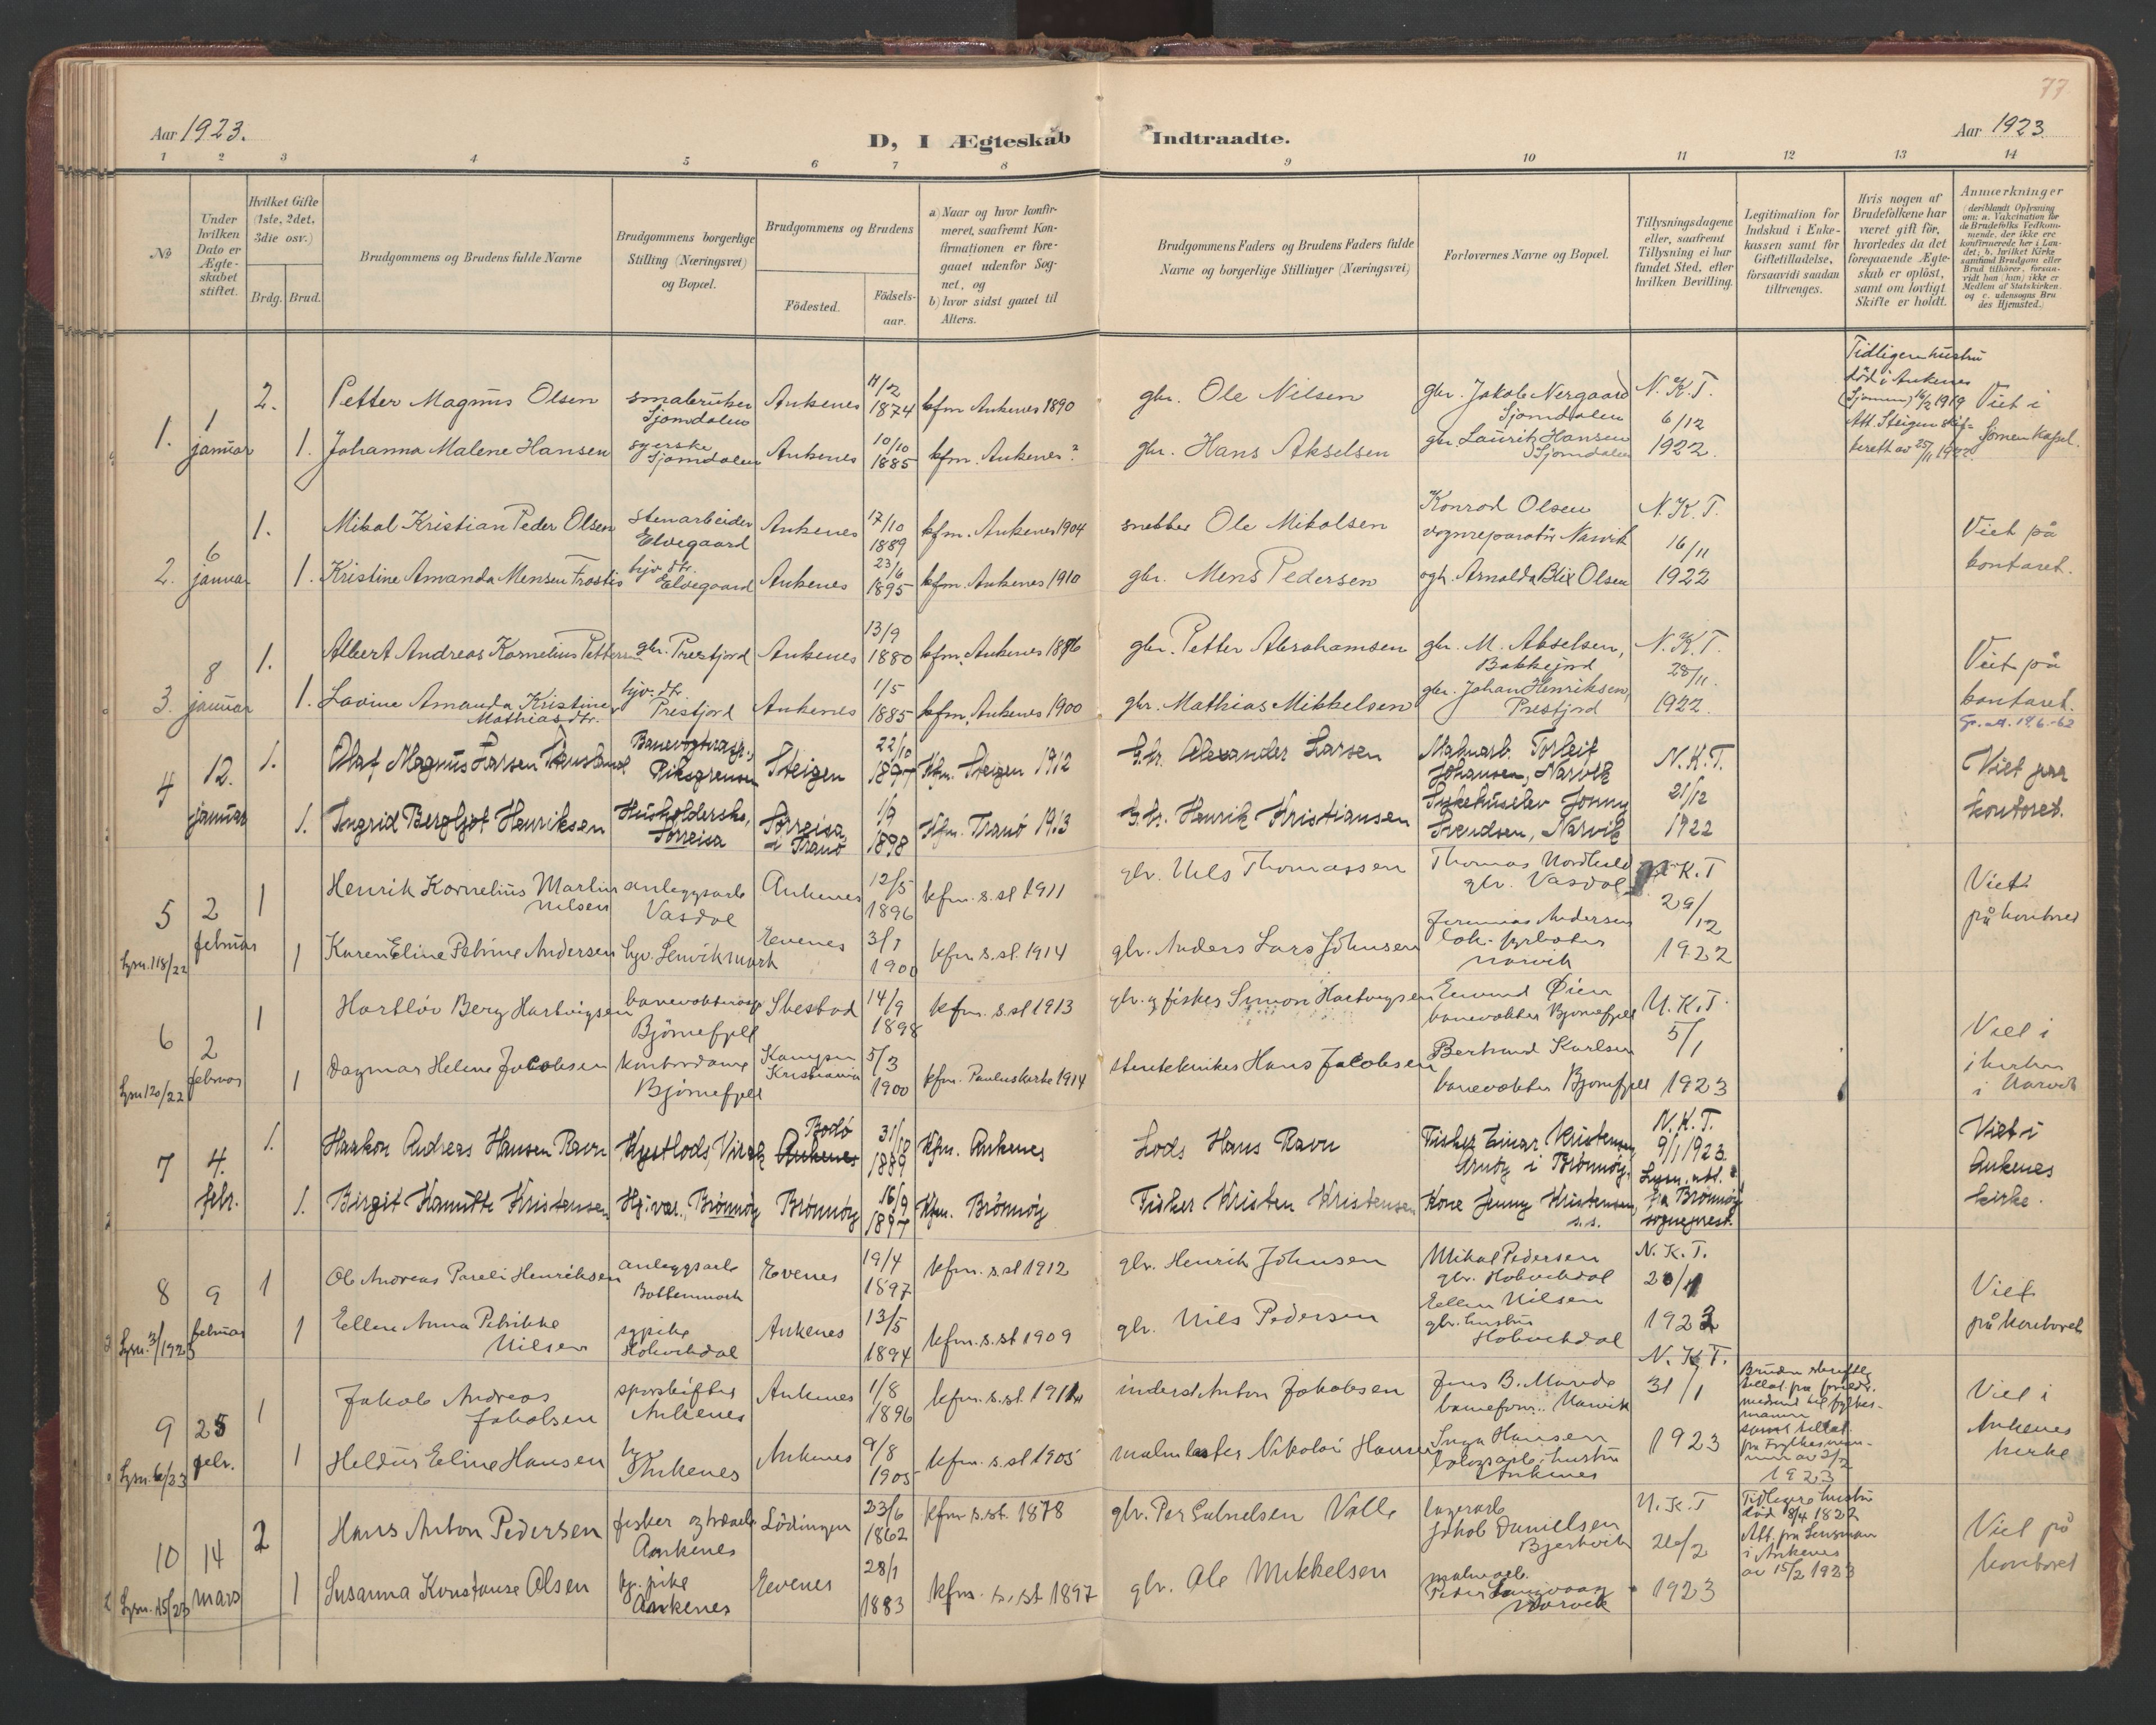 77
Aar 1923.
D, I Ægteskab Indtraadte.
Aar 1923.
1 2 3 4 5 6 7 8 9 10 11 12 13 14
№
Under hvilken Dato er Ægteskabet stiftet.
Hvilket Gifte (1ste, 2det, 3die osv.)
Brdg. Brud.
Brudgommens og Brudens fulde Navne
Brudgommens borgerlige Stilling (Næringsvei) og Bopæl.
Brudgommens og Brudens
Födested.
Födselsaar.
a) Naar og hvor konfirmeret, saafremt Konfirmationen er foregaaet udenfor Sognet, og
b) hvor sidst gaaet til Alters.
Brudgommens Faders og Brudens Faders fulde Navne og borgerlige Stillinger (Næringsvei)
Forlovernes Navne og Bopæl.
Tillysningsdagene eller, saafremt Tillysning ei har fundet Sted, efter hvilken Bevilling.
Legitimation for Indskud i Enkekassen samt for Giftetilladelse, forsaavidt saadan tiltrænges.
Hvis nogen af Brudefolkene har været gift för, hvorledes da det foregaaende Ægteskab er oplöst, samt om lovligt Skifte er holdt.
Anmærkninger (deriblandt Oplysning om: a. Vakcination for de Brudefolks Vedkommende, der ikke ere konfirmerede her i Landet; b. hvilket Kirkesamfund Brudgom eller Brud tilhörer, forsaavidt han (hun) ikke er Medlem af Statskirken, og c. udensogns Brudes Hjemsted.)
1. 1 januar
2. Petter Magnus Olsen småbruker Sjomdalen Ankenes 11/12 1874 kfm Ankenes 1890 gbr. Ole Nilsen gbr. Jakob Nergaard Sjomdalen N.K.T. 6/12 1922.
Tidligere hustru död i Ankenes (Sjomen) 14/2 1919 Att. Steigen skifterett av 25/11 1922.
Viet i Somen kapel.
1. Johanna Malene Hansen syerske Sjomdalen Ankenes 10/10 1885 kfm. Ankenes? gbr. Hans Akselsen gbr Laurits Hansen Sjomdalen
2. 6 januar
1. Mikal Kristian Peder Olsen stenarbeider Elvegaard Ankenes 17/10 1889 kfm. Ankenes 1904 snekker Ole Mikalsen Konrad Olsen vognreparatör Narvik N.K.T. 16/11 1922
Viet på kontoret.
1. Kristine Amanda Mensen Frostis hjv. dtr. Elvegaard Ankenes 23/6 1895 kfm. Ankenes 1910 gbr. Mens Pedersen ogh. Arnolda Blix Olsen
3. 8 januar
1. Albert Andreas Kornelius Pettersen gbr. Prestjord Ankenes 13/9 1880 kfm. Ankenes 1896 gbr. Petter Abrahamsen gbr. M. Akselsen, Bakkejord N.K.T. 28/11. 1922.
Viet på kontoret.
1. Lovine Amanda Kristine Mathiasdtr. hjv. dtr. Prestjord Ankenes 1/5 1885 kfm. Ankenes 1900 gbr. Mathias Mikkelsen gbr. Johan Henriksen, Prestjord
4 12. januar
1. Olaf Magnus Larsen Riksgrensen Steigen 22/10 1897 Kfm. Steigen 1912 G.br. Alexander Larsen Malmarb. Torleif Johansen, Narvik N.K.T. 21/12 1922
Viet paa kontoret.
1. Ingrid Bergljot Henriksen Husholderske, Sørreisa Sørreisa i Tranö 1/9 1898 Kfm. Tranö 1913 G.br. Henrik Kristiansen Sykehuselev Jonny Svendsen, Narvik
5 2 februar
Lysn. 118/22
1 Henrik Kornelius Martin Nilsen anleggsarb Vasdal Ankenes 12/5 1896 kfm. s.st 1911 gbr. Nils Thomassen Thomas Nordheld gbr. Vasdal N.K.T 29/12 1922
Viet på kontoret
1 Karen Eline Petrine Andersen hjv. Lenvikmark Evenes 3/1 1900 kfm s.st. 1914 gbr. Anders Lars Johnsen Jeremias Andersen lok. fyrböter Narvik
6 2 februar
Lysn 120/22
1 Hartlöv Berg Hartvigsen banevokteras Björnefjell 14/9 1898 kfm. s.st 1913 gbr. og fisker Simon Hartvigsen Øien banevokter Bjørnefjell N.K.T. 5/1 1923
Viet i kirken i Narvik
1 Dagmar Helene Jacobsen kontordame Björnefjell Kristiania 5/3 1900 kfm. Pauluskirke 1914 Hans Jacobsen Karlsen banevokter Bjørnefjell
7 4. febr.
1. Haakon Andreas Hansen Ravn Kystlods, Virak Bodö Ankenes 31/12 1889 Kfm. Ankenes Lods Hans Ravn Fisker Einar Kristensen, Årnöy i Brönnöy. N.K.T. 9/1 1923. Lysn. att. fra Brönnöy sogneprest.
Viet i Ankenes kirke.
1. Birgit Hamutte Kristensen Hj. vær., Brönnöy Brönnöy 16/9 1897 Kfm. Brönnöy Fisker Kristen Kristensen Kone Jenny Kristensen, s.s.
8 9 februar
Lysn. 3/1923
1 Ole Andreas Pareli Henriksen anleggsarb Bottenmark Evenes 19/4 1897 kfm. s.st 1912 gbr. Henrik Johnsen Mikal Pedersen gbr. Holvikdal N.K.T. 1923
Viet på kontoret
1 Ellen Anna Petrikke Nilsen sypike Holvikdal Ankenes 13/5 1894 kfm. s.st 1909 gbr. Nils Pedersen Ellen Nilsen gbr. hustru Holvikdal
9 25 febr.
Lysn. 6/23
1 Jakob Andreas Jakobsen sporskifter Ankenes Ankenes 1/8 1896 kfm. s.st. 1911 inderst Anton Jakobsen Jens B. baneform. Narvik N.K.T. 31/1 1923
Bruden skriftlig tillat. fra foreldr. samt tillat. fra Fylkesmannen av 2/2 1923
Viet i Ankenes kirke
1 Heldur Eline Hansen hjv Ankenes Ankenes 9/8 1905 kfm. s.st 1905 malmlaster Nikolai Hansen Inga Hansen hustru Ankenes
10 14 mars
Lysn. 15/23
2 Hans Anton Pedersen fisker og Ankenes Lödingen 23/6 1862 kfm s.st. 1878 gbr. Per Valle lagerarb Jakob Danielsen Bjerkvik N.K.T 26/2 1923
Tidligere hustru död 8/4 1822 Att. fra Lensman i Ankenes av 15/2 1923
Viet på kontoret
1 Susanna Konstanse Olsen hj. pike Ankenes Evenes 28/1 1883 kfm. s.st 1897 gbr. Ole Mikkelsen malmarb. Peder Langvaag Narvik